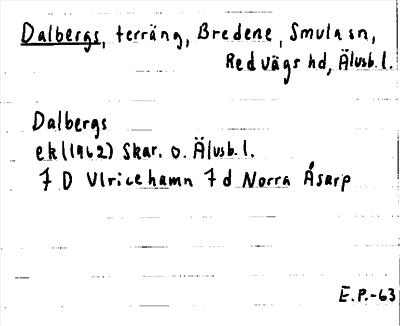 Dalbergs, terräng, Bredene, Smula sn,
Redvägs hd, Älvsb. l.
Dalbergs
ek(1962) Skar. o. Älvsb. l.
7 D Ulricehamn 7 d Norra Åsarp
E.P.-63